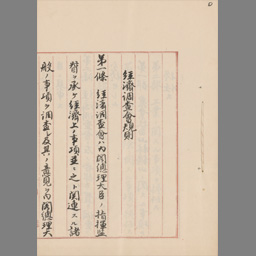 経済調査会規則
第一條 経済調査会ハ内閣總理大臣ノ指揮監
督ヲ承ケ経済上ノ事項並ニ之ト関連スル諸
般ノ事項ヲ調査シ及其ノ意見ヲ内閣總理大